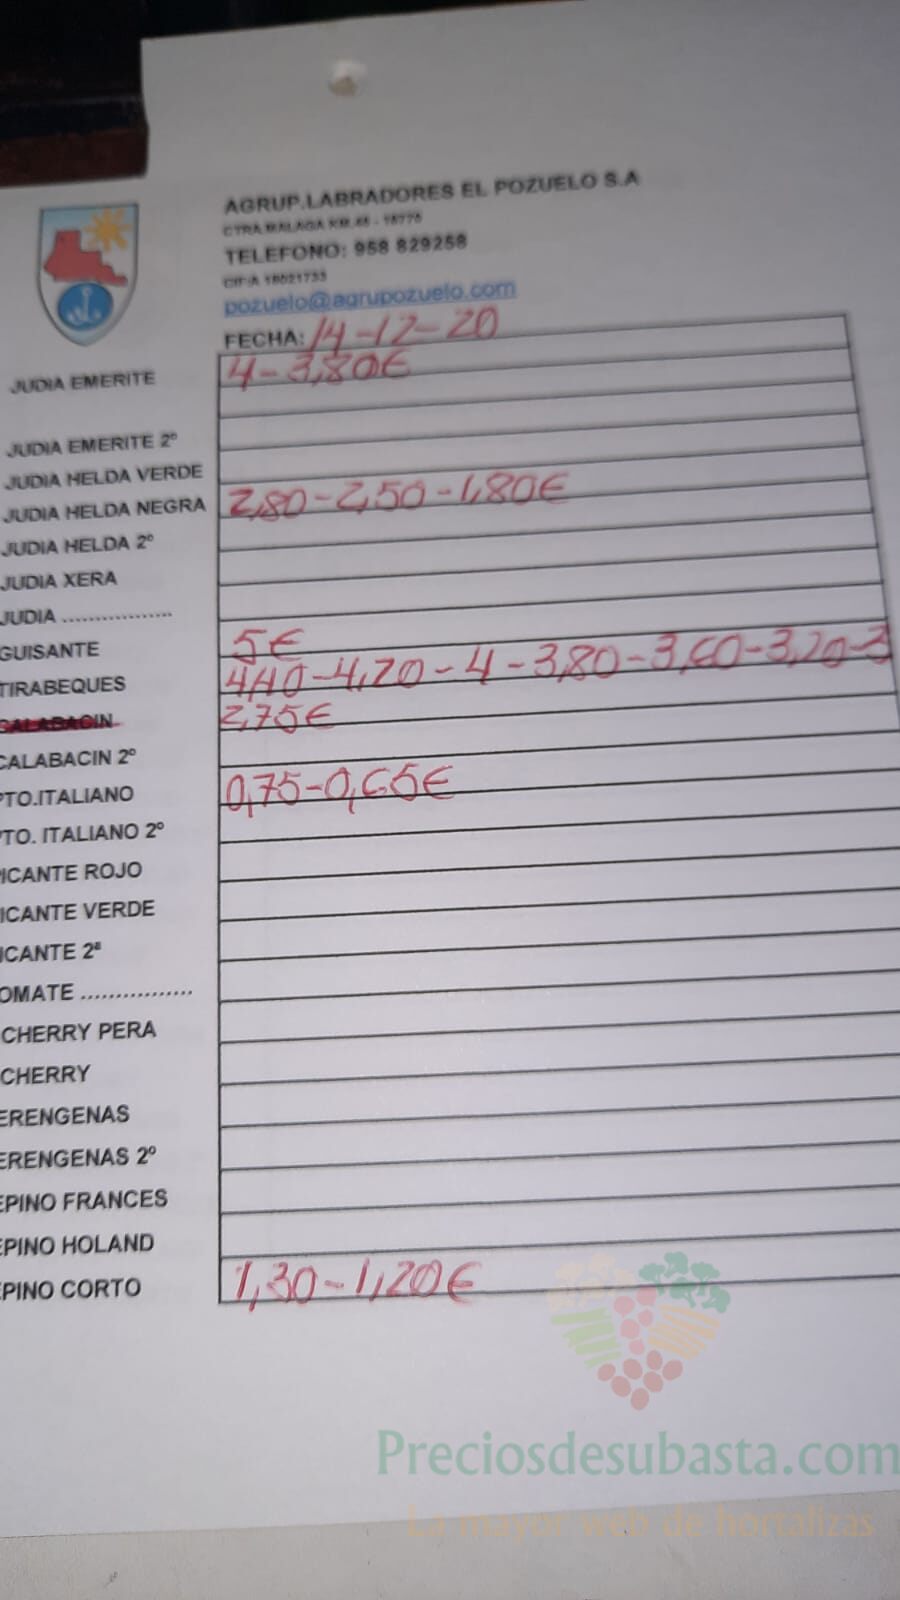 AGRUP.LABRADORES EL POZUELO S.A
CTRA MALAGA KM.45 - 18775
TELEFONO: 958 829258
CIF-A 18021733
pozuelo@agrupozuelo.com
FECHA: 14-12-20
JUDIA EMERITE 4-3,80€
JUDIA EMERITE 2º
JUDIA HELDA VERDE
JUDIA HELDA NEGRA 2,80-2,50-1,80€
JUDIA HELDA 2º
JUDIA XERA
JUDIA .................
GUISANTE 5€
TIRABEQUES 4,40-4,20-4-3,80-3,60-3,20-3
CALABACIN 2,75€
CALABACIN 2º
PTO.ITALIANO 0,75-0,65€
PTO. ITALIANO 2º
ICANTE ROJO
ICANTE VERDE
ICANTE 2ª
OMATE ................
CHERRY PERA
CHERRY
ERENGENAS
ERENGENAS 2º
EPINO FRANCES
EPINO HOLAND
EPINO CORTO 1,30-1,20€
Preciosdesubasta.com
La mayor web de hortalizas